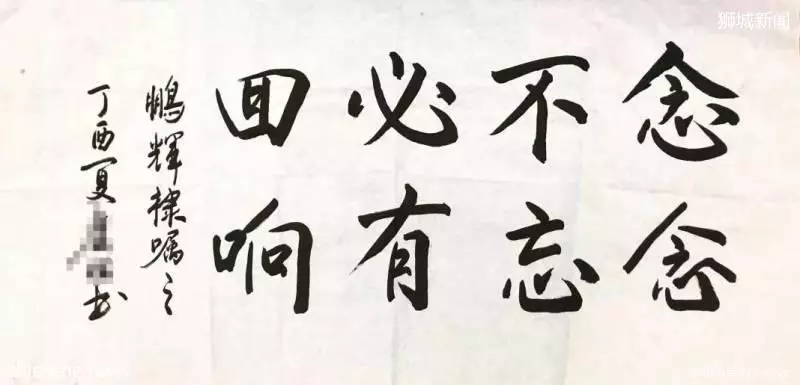 狮城新闻
念念
不忘
必有
回响
鵬輝棣嘱之
丁酉夏 书